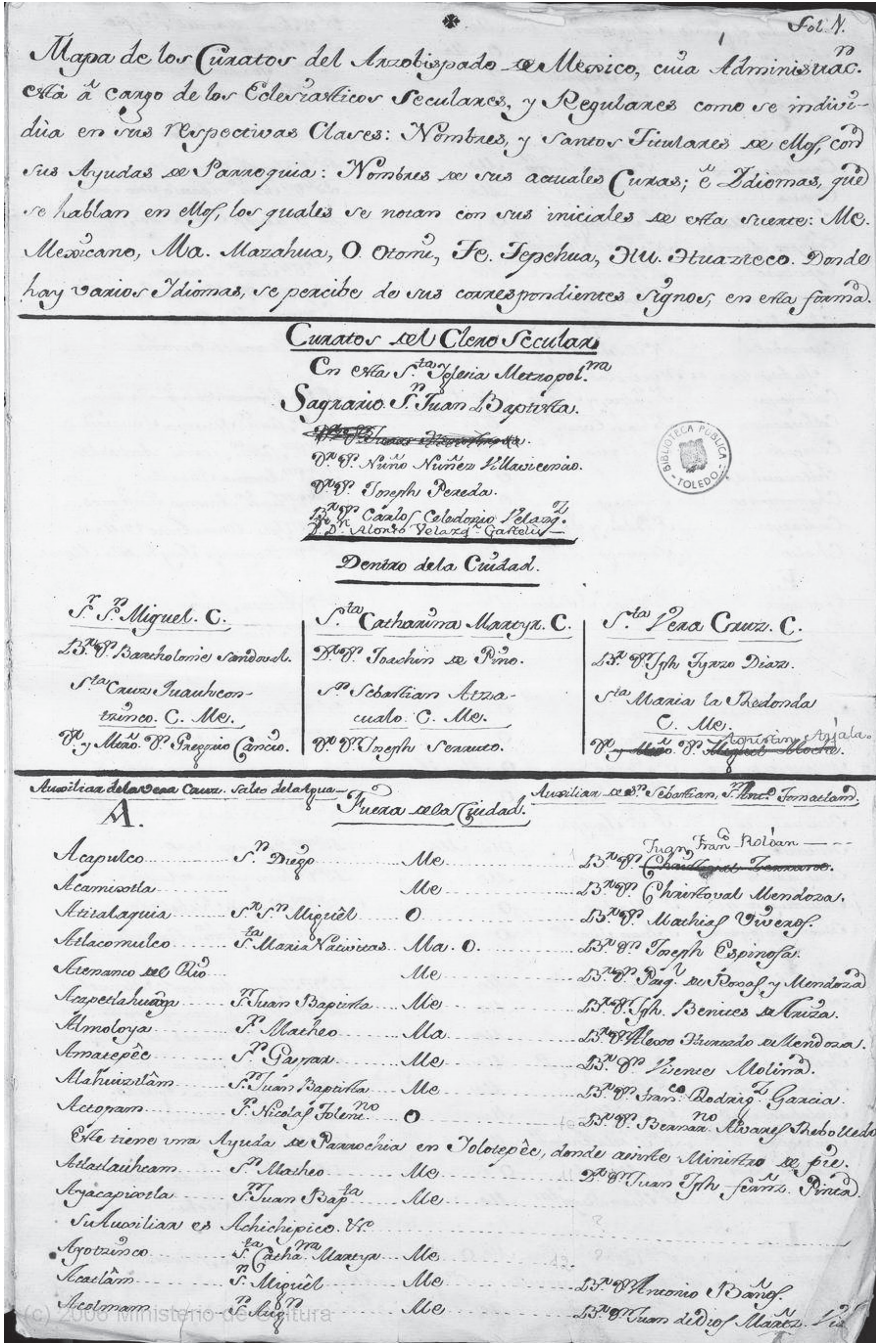 Fol. 1.
Mapa de los Curatos del Arzobispado de Mexico, cuia Administrac.n
està â cargo de los Eclesiasticos Seculares, y Regulares como se indivi-
dùa en sus respectivas Clases: Nombres, y Santos Titulares de ellos, con
sus Ayudas de Parroquia: Nombres de sus actuales Curas; ê Idiomas, que
se hablan en ellos, los quales se notan con sus iniciales de esta suerte: Me.
Mexicano, Ma. Mazahua, O. Otomi, Te. Tepehua, Hu. Huazteco. Donde
hay varios Idiomas, se percibe de sus correspondientes signos, en esta forma.
Curatos del Clero Secular
En esta S.ta Yglesia Metropol.na
Sagrario S.n Juan Baptista.
D.r D.n Nuño Nuñez Villavicencio.
D.r D.n Joseph Pereda.
B.r D.n Cárlos Celedonio Velazq.z
D.n Alonso Velazq.
BIBLIOTECA PUBLICA
TOLEDO
Dentro de la Ciudad.
S.r S.n Miguel. C.
B.r D.n Bartholome Sandoval.
S.ta Cruz
C. Me.
D.r y Mtro. D.n Gregorio Cancio.
S.ta Catharina Martyr. C.
D.r D.n Joachin de Pino.
S.n Sebastian Atza-
cualo. C. Me.
D.r D.n Joseph Serruto.
S.ta Vera Cruz. C.
B.r D.n Jph Tyrzo Diaz.
S.ta Maria la Redonda
C. Me.
Agustin Ayala.
Auxiliar de la vera Cruz. Salto del Agua
Auxiliar de S.n Sebastian, S.n Ant.o Tomatlan.
Fuera de la Ciudad.
A.
Juan Fran.co Roldan
Acapulco S.n Diego Me B.r D.n
Acamixtla Me B.r D.n Christoval Mendoza.
Atitalaquia S.r S.n Miguêl O B.r D.n Mathias Viveros.
Atlacomulco S.ta Maria Nativitas Ma. O. B.r D.n Joseph Espinosa.
Atenanco del Rio Me B.r D.n de Roxas y Mendoza
Atapetlahuaya S.n Juan Baptista Me B.r D.n Jph. Benites de Ariza.
Almoloya S.n Matheo Ma B.r D.n Alexo Hurtado de Mendoza.
Amatepêc S.n Gaspar Me B.r D.n Vicente Molina.
Alahuiztlâm S.n Juan Baptista Me B.r D.n Fran.co Rodrig.z Garcia.
Actopam S.n Nicolas Tolent.no O B.r D.n Bernar.no Alvares Rebolledo
Este tiene una Ayuda de Parrochia en Tolotepêc, donde asiste Ministro de pie.
Atlatlaucam S.n Matheo Me B.r D.n Juan Jph fernz. Pinta.
Ayacapixtla S.n Juan Bap.ta Me
Su Auxiliar es Achichipico. &c.
Ayotzinco S.ta Catha.na Martyr Me
Acatlâm S.n Miguêl Me B.r D.n Antonio Bañoz.
Acolmam S.n Aug.n Me B.r D.n Juan de Dios
(c) 2006 Ministerio de Cultura